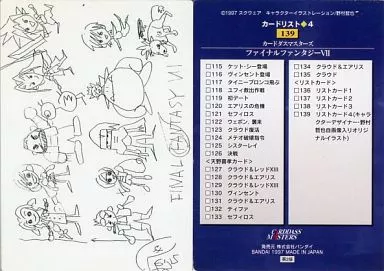 FINAL FANTASY VII
©1997 スクウェア キャラクターイラストレーション/野村哲也
カードリスト◆4
139
カードダスマスターズ
ファイナルファンタジーVII
□115 ケット・シー登場
□116 ヴィンセント登場
□117 タイニーブロンコ飛ぶ
□118 ユフィ救出作戦
□119 初デート
□120 エアリスの危機
□121 セフィロス
□122 ウェポン、襲来
□123 クラウド復活
□124 メテオ破壊指令
□125 シスターレイ
□126 決戦
<天野喜孝カード>
□127 クラウド&レッドXIII
□128 クラウド&エアリス
□129 クラウド&レッドXIII
□130 ヴィンセント
□131 クラウド
□132 ティファ
□133 セフィロス
□134 クラウド&エアリス
□135 クラウド
<リストカード>
□136 リストカード1
□137 リストカード2
□138 リストカード3
□139 リストカード4(キャラ
クターデザイナー・野村
哲也自画像入りオリジ
ナルイラスト)
CARDDASS
MASTERS
発売元 株式会社バンダイ
BANDAI 1997 MADE IN JAPAN
第2版